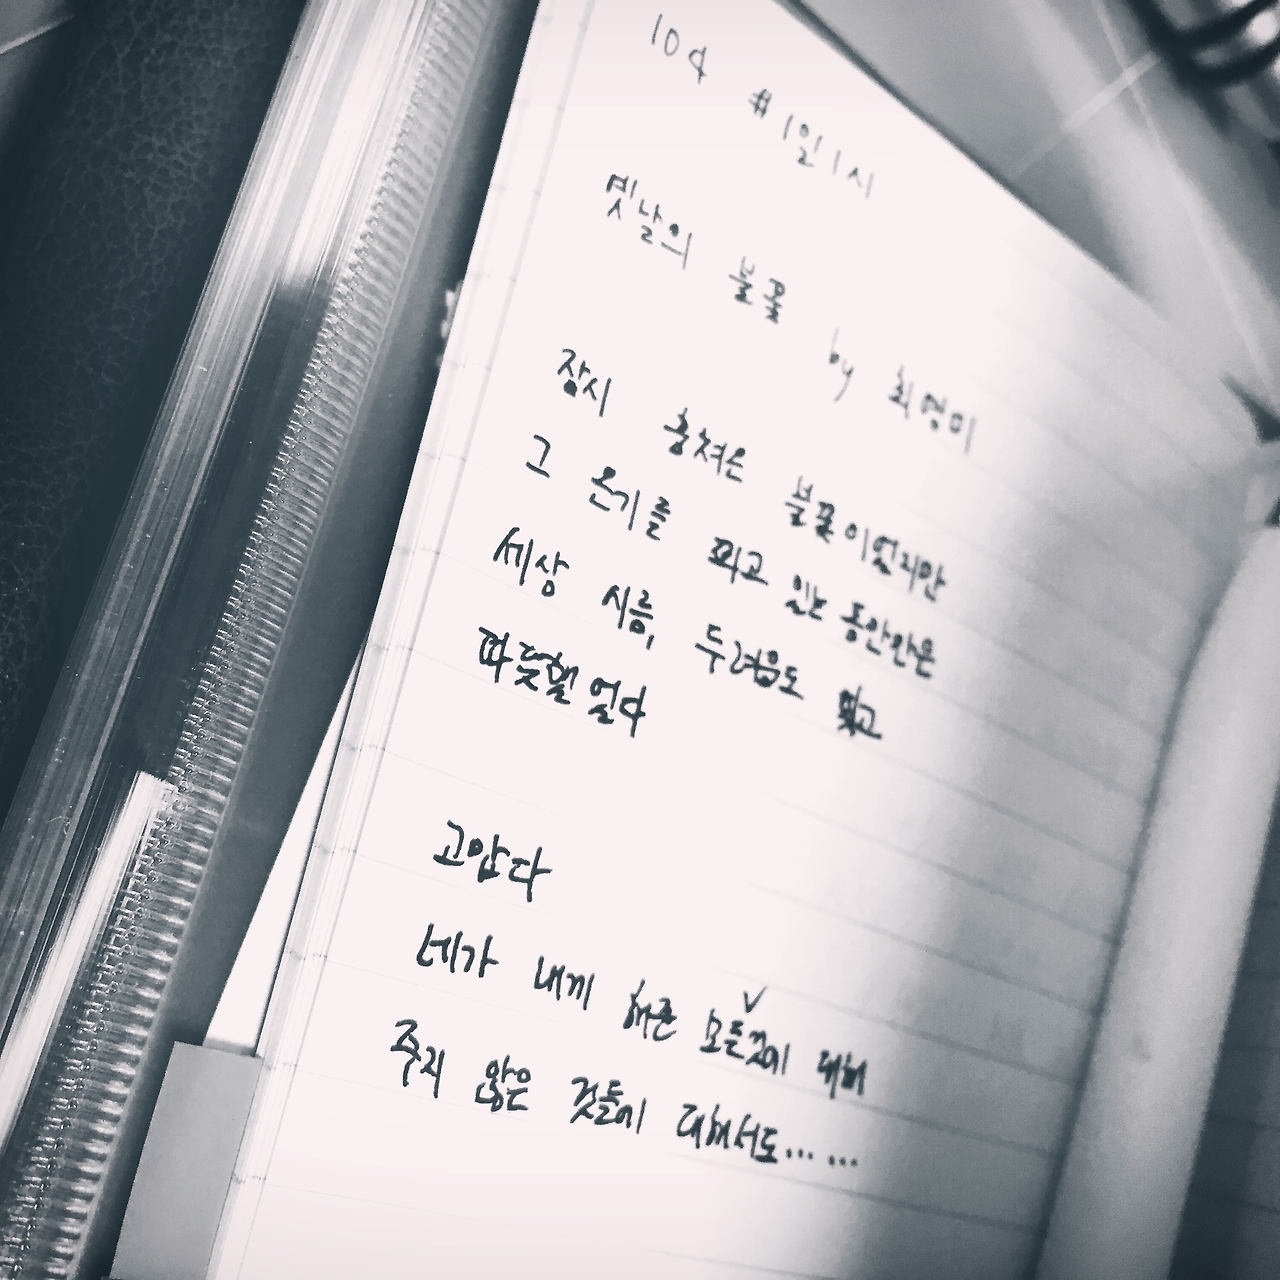 109 #1일1시
옛날의 불꽃 by 최영미
잠시 훔쳐온 불꽃이었지만
그 온기를 쬐고 있는 동안만은
세상 시름, 두려움도 잊고
따뜻했었다
고맙다
네가 내게 해준 모든∨것에 대해
주지 않은 것들에 대해서도... ...